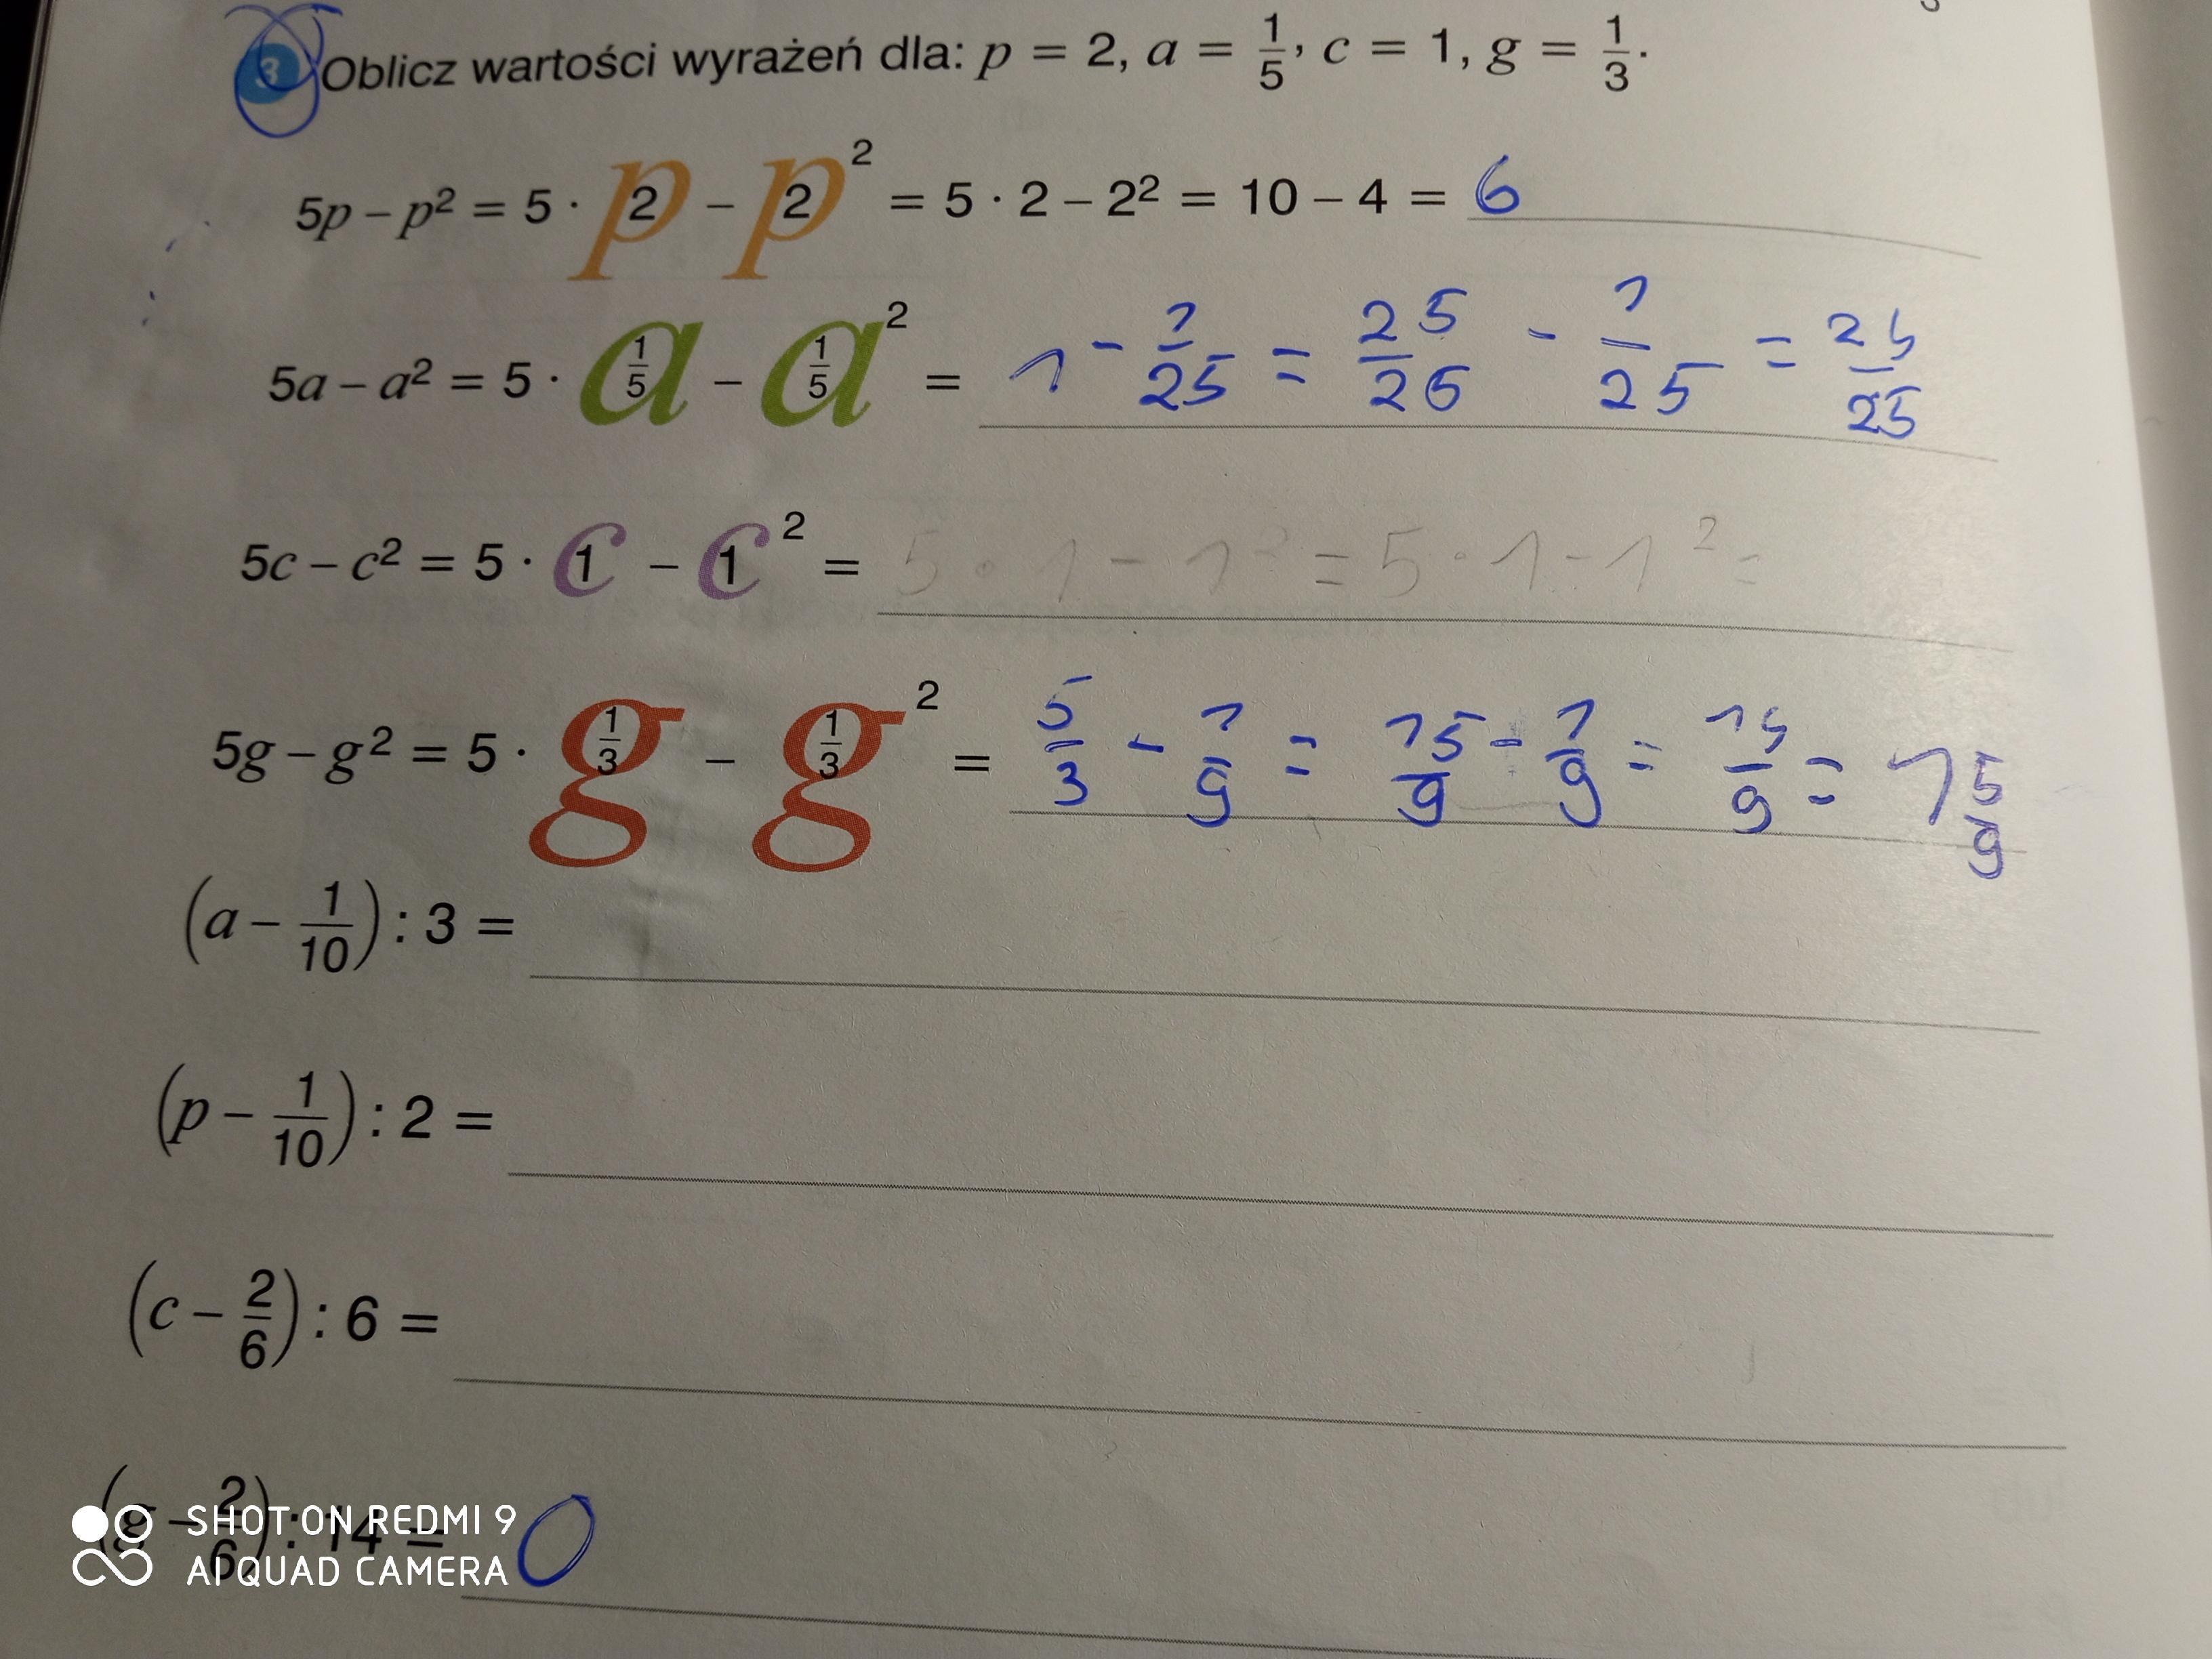 3 Oblicz wartości wyrażeń dla: p = 2, a = 1/5, c = 1, g = 1/3.
5p – p² = 5 · p 2 – p 2 ² = 5 · 2 – 2² = 10 – 4 = 6
5a – a² = 5 · a 1/5 – a 1/5 ² = 1 - 1/25 = 25/25 - 1/25 = 24/25
5c – c² = 5 · c 1 – c 1 ² = 5 · 1 - 1² = 5 · 1 - 1² =
5g – g² = 5 · g 1/3 – g 1/3 ² = 5/3 - 1/9 = 15/9 - 1/9 = 14/9 = 1 5/9
(a – 1/10) : 3 =
(p – 1/10) : 2 =
(c – 2/6) : 6 =
(g – 2/6) : 14 = 0
SHOT ON REDMI 9
AI QUAD CAMERA